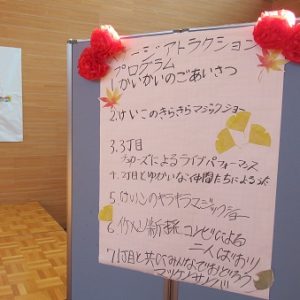 ージアトラクション
プログラム
1.かいかいのごあいさつ
2.けいこのきらきらマジックショー
3.3丁目
によるライブパフォーマンス
4.2丁目とゆかいな仲間たちによるうた
5 けいこのキラキラマジックショー
6 竹メと新採コンビによる
二人ばおり
7 1丁目と共にみんなでおどろう
マツケンサンバ